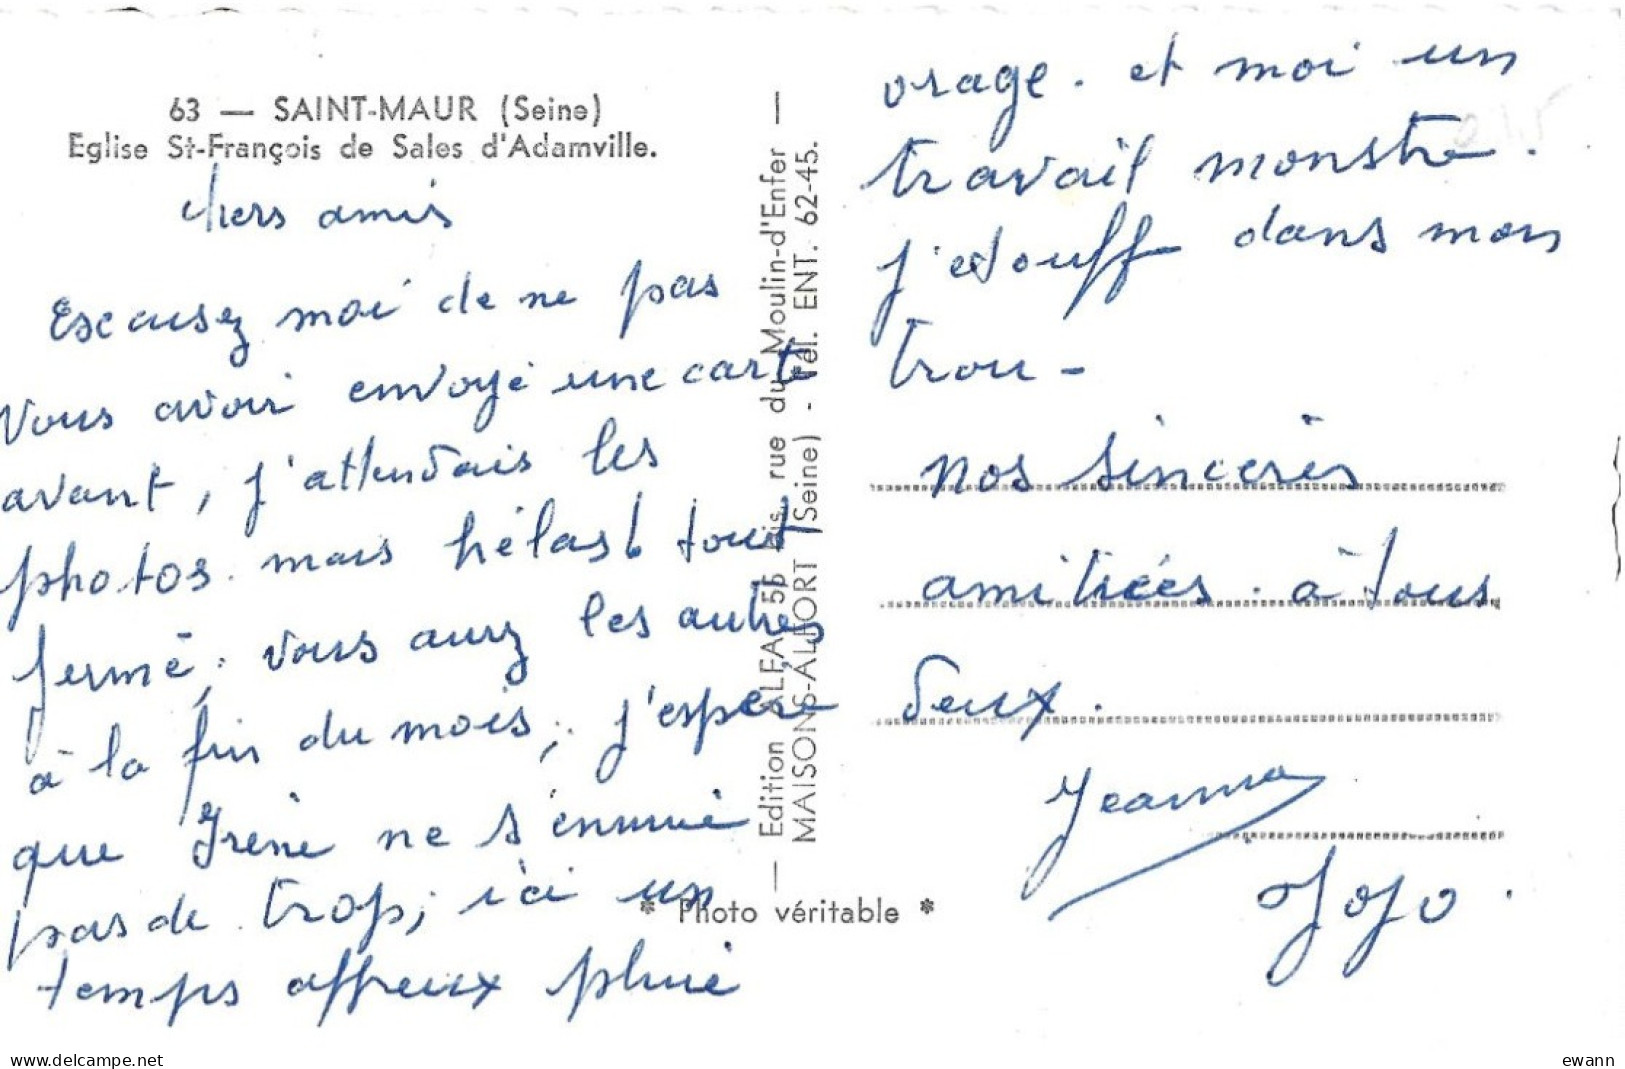 63 — SAINT-MAUR (Seine)
Eglise St-François de Sales d'Adamville.
chers amis
Escusez moi de ne pas
vous avoir envoyé une carte
avant, j'attendais les
photos. mais hélas! tout
fermé; vous aurez les autres
à la fin du mois; j'espère
que Irène ne s'ennuie
pas de trop; ici un
temps affreux pluie
— Edition ALFA, 55 bis, rue du Moulin-d'Enfer —
MAISONS-ALFORT (Seine) - Tél. ENT. 62-45.
* Photo véritable *
orage. et moi un
travail monstre.
j'étouffe dans mon
trou -
nos sincères
amitiées. à tous
deux.
Jeanne
Jojo.
delcampe.net
ewann